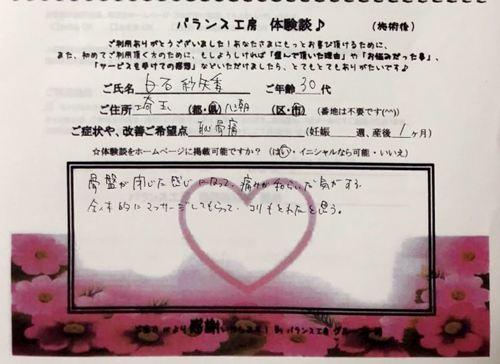 バランス工房 体験談♪ (施術後)
ご利用ありがとうございました！あなたさまにもっとお喜び頂けるために、
また、初めてご利用頂く方のために、もしよろしければ「選んで頂いた理由」や「お悩みだった事」、
「サービスを受けての感想」などいただけましたら、とてもとてもありがたいです♪
ご氏名 白石 紗矢香 ご年齢 30 代
ご住所 埼玉 (都・県) 八潮 (区・市) (番地は不要です(^^))
ご症状や、改善ご希望点 恥骨痛 (妊娠 週、産後 1 ヶ月)
☆体験談をホームページに掲載可能ですか？ (はい・イニシャルなら可能・いいえ)
骨盤が閉じた感じになって、痛みが和らいだ気がする。
全体的にマッサージしてもらって、コリもとれたと思う。
感謝 バランス工房グループ